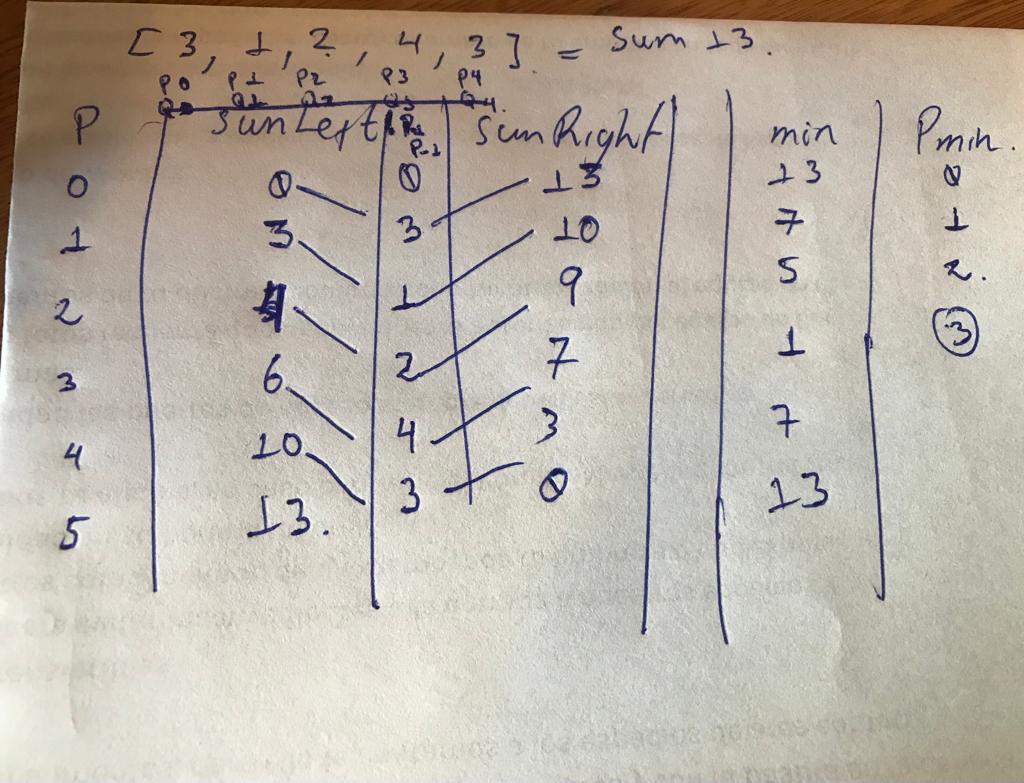 [ 3, 1, 2, 4, 3 ]. = Sum 13.
P0 P1 P2 P3 P4
P SumLeft P-1 SumRight min Pmin.
0 0 0 13 13 0
1 3 3 10 7 1
2 4 1 9 5 2.
3 6 2 7 1 3
4 10 4 3 7
5 13. 3 0 13